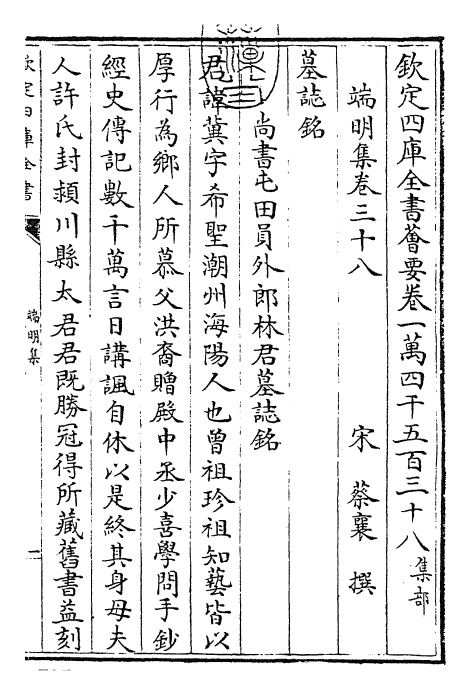 欽定四庫全書薈要卷一萬四千五百三十八集部
端明集卷三十八 宋 蔡襄 撰
墓誌銘
尚書屯田員外郎林君墓誌銘
君諱冀字希聖潮州海陽人也曾祖珍祖知藝皆以
厚行為鄉人所慕父洪裔贈殿中丞少喜學問手鈔
經史傳記數千萬言日講諷自休以是終其身母夫
人許氏封潁川縣太君君既勝冠得所藏舊書益刻
欽定四庫全書
端明集
一